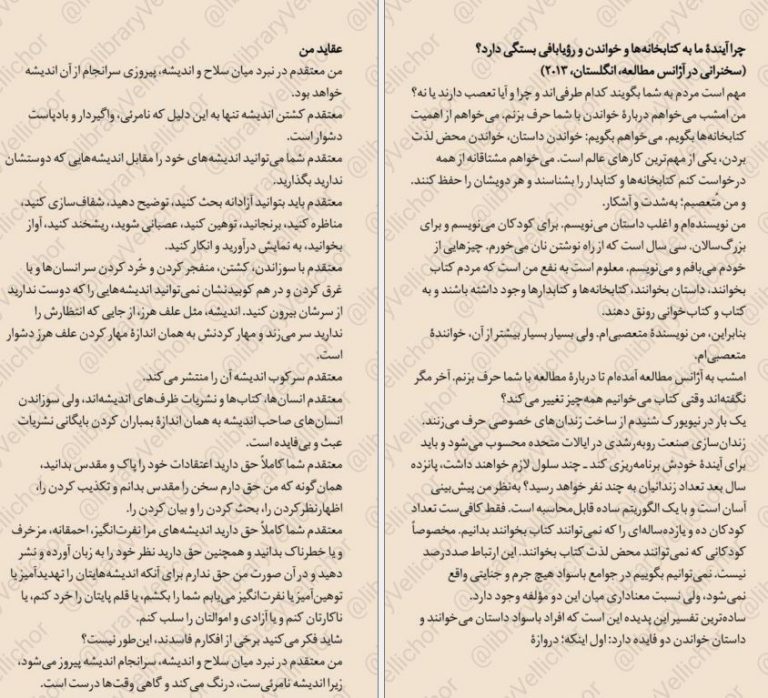 چرا آیندهٔ ما به کتابخانه‌ها و خواندن و رؤیابافی بستگی دارد؟
(سخنرانی در آژانس مطالعه، انگلستان، ۲۰۱۳)
مهم است مردم به شما بگویند کدام طرفی‌اند و چرا و آیا تعصب دارند یا نه؟
من امشب می‌خواهم دربارهٔ خواندن با شما حرف بزنم. می‌خواهم از اهمیت
کتابخانه‌ها بگویم. می‌خواهم بگویم: خواندن داستان، خواندن محض لذت
بردن، یکی از مهم‌ترین کارهای عالم است. می‌خواهم مشتاقانه از همه
درخواست کنم کتابخانه‌ها و کتابدار را بشناسند و هر دویشان را حفظ کنند.
و من مُتعصبم؛ به‌شدت و آشکار.
من نویسنده‌ام و اغلب داستان می‌نویسم. برای کودکان می‌نویسم و برای
بزرگ‌سالان. سی سال است که از راه نوشتن نان می‌خورم. چیزهایی از
خودم می‌بافم و می‌نویسم. معلوم است به نفع من است که مردم کتاب
بخوانند، داستان بخوانند، کتابخانه‌ها و کتابدارها وجود داشته باشند و به
کتاب و کتاب‌خوانی رونق دهند.
بنابراین، من نویسندهٔ متعصبی‌ام. ولی بسیار بسیار بیشتر از آن، خوانندهٔ
متعصبی‌ام.
امشب به آژانس مطالعه آمده‌ام تا دربارهٔ مطالعه با شما حرف بزنم. آخر مگر
نگفته‌اند وقتی کتاب می‌خوانیم همه‌چیز تغییر می‌کند؟
یک بار در نیویورک شنیدم از ساخت زندان‌های خصوصی حرف می‌زنند.
زندان‌سازی صنعت روبه‌رشدی در ایالات متحده محسوب می‌شود و باید
برای آیندهٔ خودش برنامه‌ریزی کند ـ چند سلول لازم خواهند داشت، پانزده
سال بعد تعداد زندانیان به چند نفر خواهد رسید؟ به‌نظر من پیش‌بینی
آسان است و با یک الگوریتم ساده قابل‌محاسبه است. فقط کافی‌ست تعداد
کودکان ده و یازده‌ساله‌ای را که نمی‌توانند کتاب بخوانند بدانیم. مخصوصاً
کودکانی که نمی‌توانند محض لذت کتاب بخوانند. این ارتباط صددرصد
نیست. نمی‌توانیم بگوییم در جوامع باسواد هیچ جرم و جنایتی واقع
نمی‌شود، ولی نسبت معناداری میان این دو مؤلفه وجود دارد.
ساده‌ترین تفسیر این پدیده این است که افراد باسواد داستان می‌خوانند و
داستان خواندن دو فایده دارد: اول اینکه؛ دروازهٔ
عقاید من
من معتقدم در نبرد میان سلاح و اندیشه، پیروزی سرانجام از آن اندیشه
خواهد بود.
معتقدم کشتن اندیشه تنها به این دلیل که نامرئی، واگیردار و بادپاست
دشوار است.
معتقدم شما می‌توانید اندیشه‌های خود را مقابل اندیشه‌هایی که دوستشان
ندارید بگذارید.
معتقدم باید بتوانید آزادانه بحث کنید، توضیح دهید، شفاف‌سازی کنید،
مناظره کنید، برنجانید، توهین کنید، عصبانی شوید، ریشخند کنید، آواز
بخوانید، به نمایش درآورید و انکار کنید.
معتقدم با سوزاندن، کشتن، منفجر کردن و خُرد کردن سر انسان‌ها و با
غرق کردن و در هم کوبیدنشان نمی‌توانید اندیشه‌هایی را که دوست ندارید
از سرشان بیرون کنید. اندیشه، مثل علف هرز، از جایی که انتظارش را
ندارید سر می‌زند و مهار کردنش به همان اندازهٔ مهار کردن علف هرز دشوار
است.
معتقدم سرکوب اندیشه آن را منتشر می‌کند.
معتقدم انسان‌ها، کتاب‌ها و نشریات ظرف‌های اندیشه‌اند، ولی سوزاندن
انسان‌های صاحب اندیشه به همان اندازهٔ بمباران کردن بایگانی نشریات
عبث و بی‌فایده است.
معتقدم شما کاملاً حق دارید اعتقادات خود را پاک و مقدس بدانید،
همان‌گونه که من حق دارم سخن را مقدس بدانم و تکذیب کردن را،
اظهارنظرکردن را، بحث کردن را و بیان کردن را.
معتقدم شما کاملاً حق دارید اندیشه‌های مرا نفرت‌انگیز، احمقانه، مزخرف
و یا خطرناک بدانید و همچنین حق دارید نظر خود را به زبان آورده و نشر
دهید و در آن صورت من حق ندارم برای آنکه اندیشه‌هایتان را تهدیدآمیز یا
توهین‌آمیز یا نفرت‌انگیز می‌یابم شما را بکشم، یا قلم پایتان را خرد کنم، یا
ناکارتان کنم و یا آزادی و اموالتان را سلب کنم.
شاید فکر می‌کنید برخی از افکارم فاسدند، این‌طور نیست؟
من معتقدم در نبرد میان سلاح و اندیشه، سرانجام اندیشه پیروز می‌شود،
زیرا اندیشه نامرئی‌ست، درنگ می‌کند و گاهی وقت‌ها درست است.
@libraryVellichor